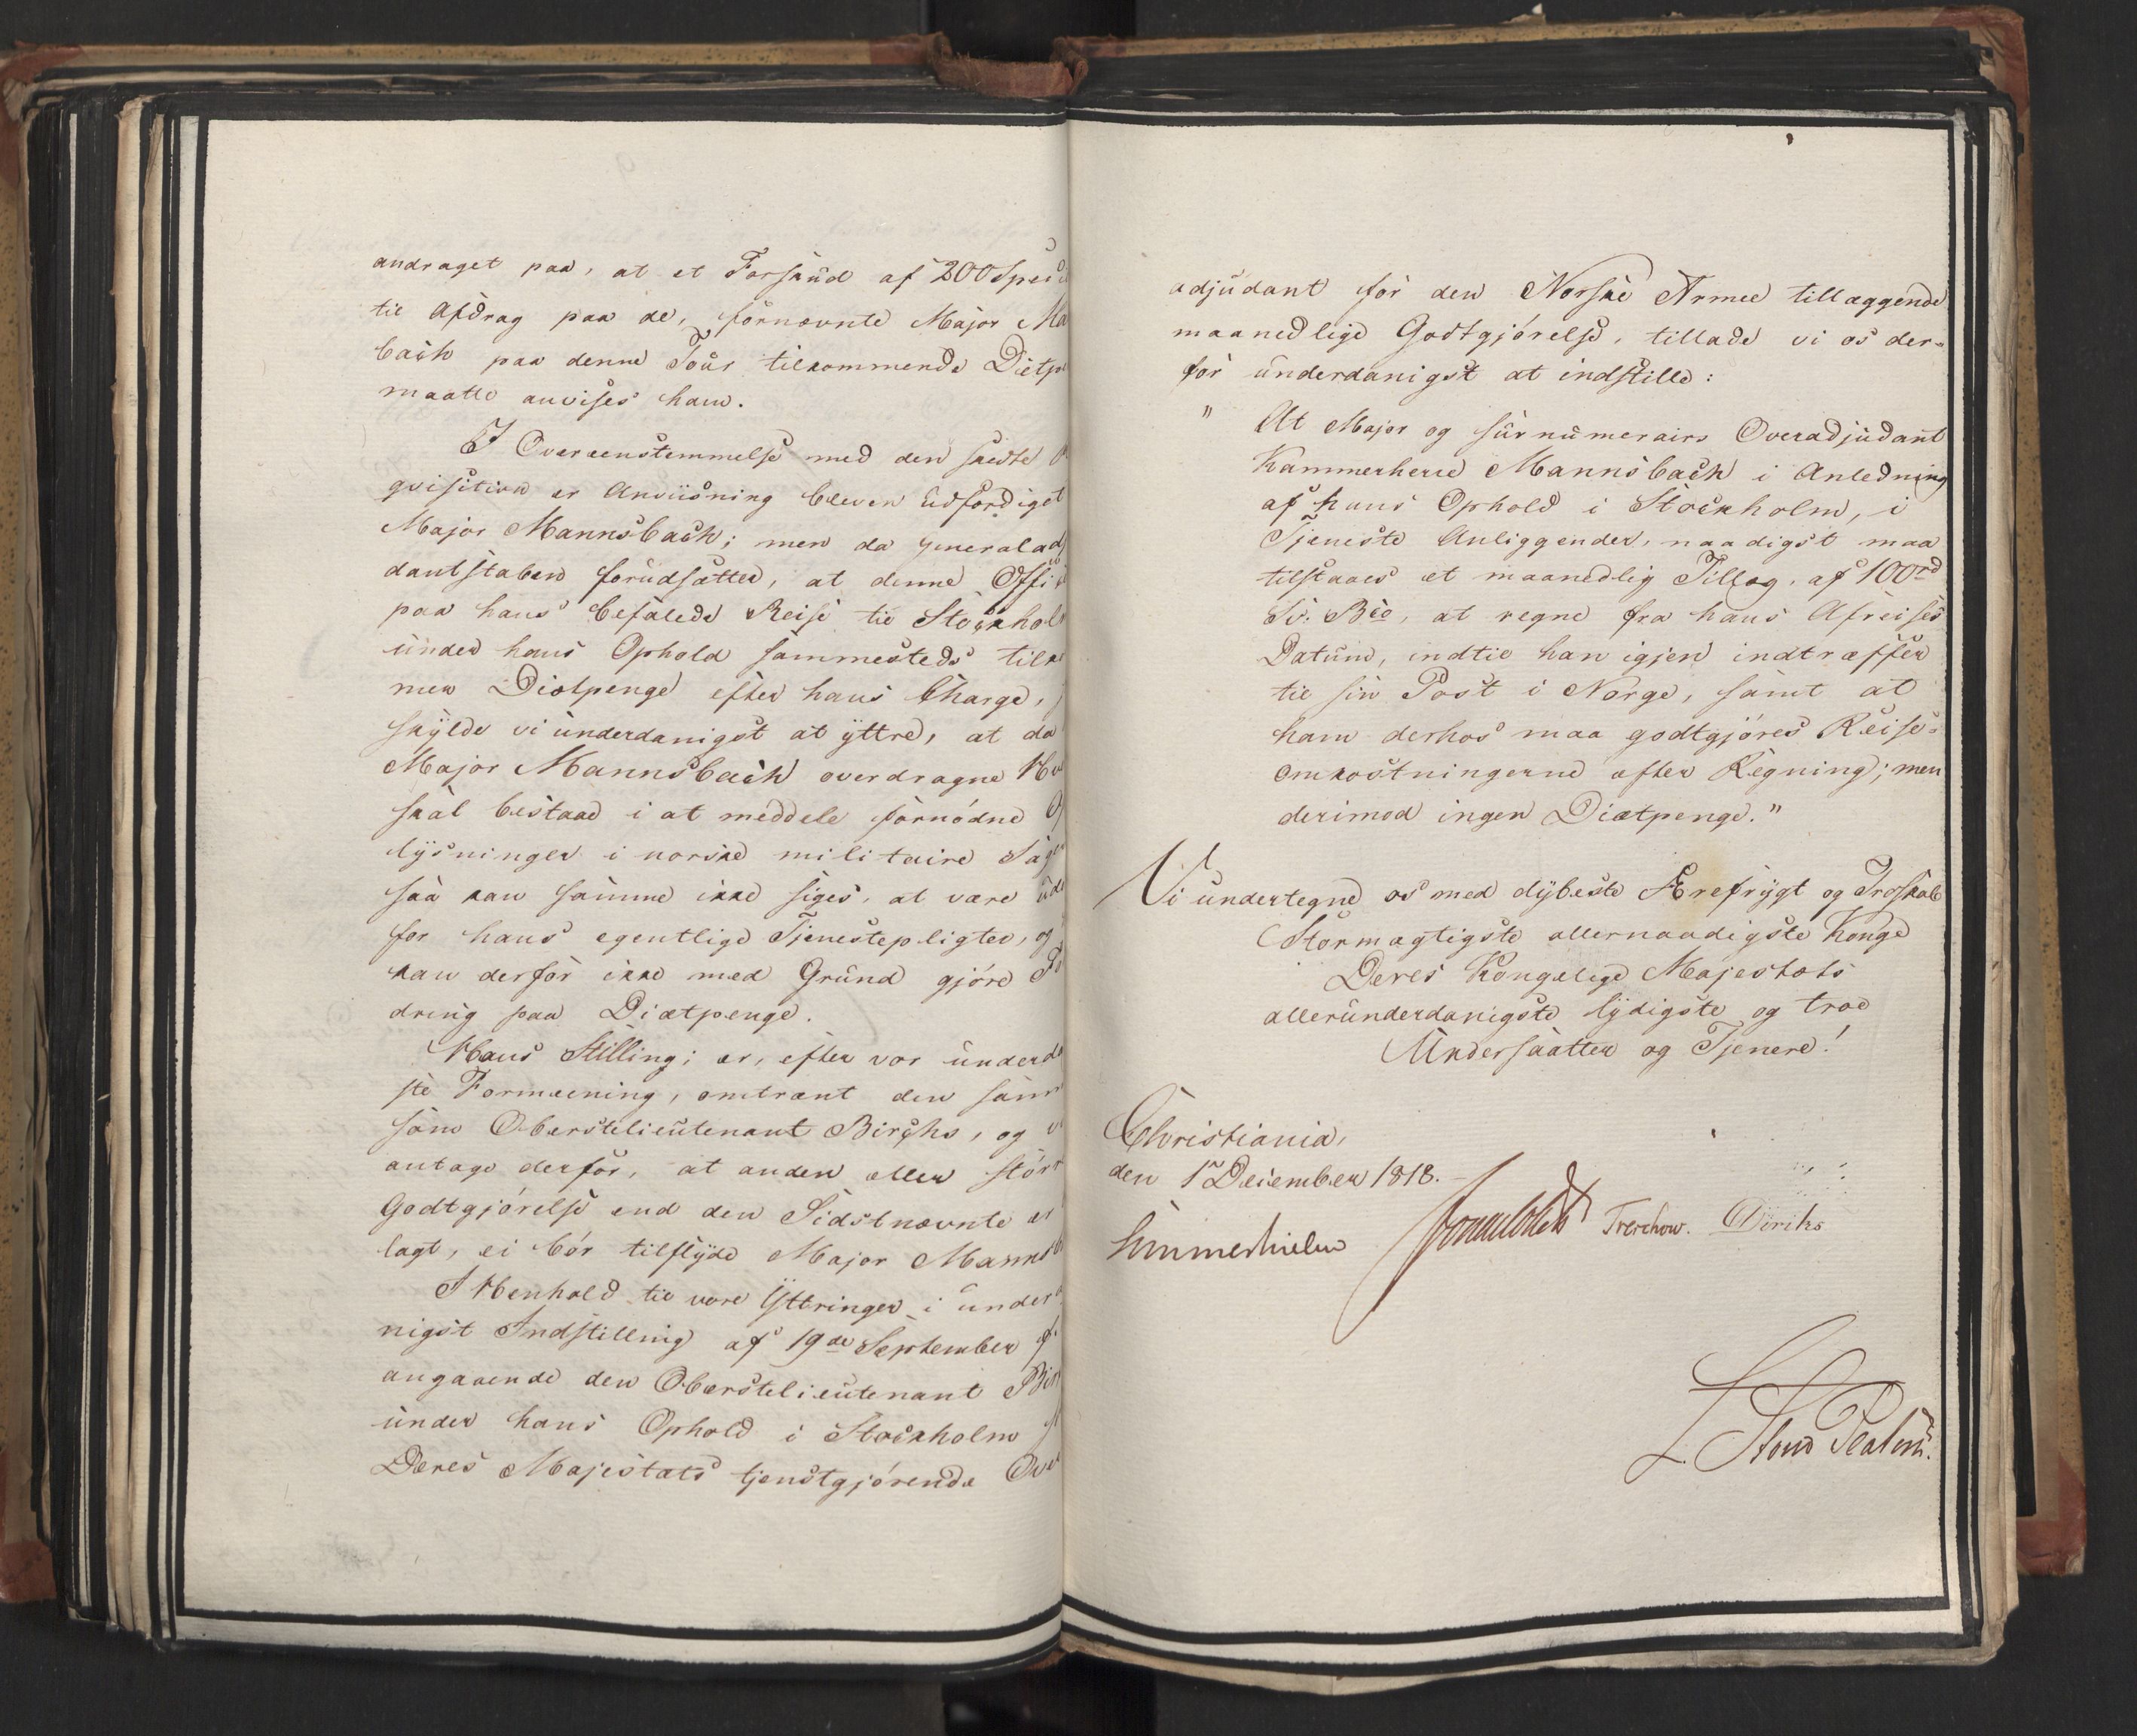 andraget paa, at et Forskud af 200 Specd
til Afdrag paa de, fornævnte Major Ma
bach paa denne Tour tilkommende Dietpe
maatte anvises ham.
I Overeensstemmelse med den skedte
qvisition er Anviisning bleven udfærdiget
Major Mannsbach; men da Generalad
dantstaben forudsætter, at denne Offi
paa hans befalede Reise til Stockhol
under hans Ophold sammesteds tilk
mer Diætpenge efter hans Charge,
skylde vi underdanigst at yttre, at da
Major Mannsbach overdragne Hv
skal bestaae i at meddele fornødne O
lysninger i norske militaire Sage
saa kan samme ikke siges, at være ude
for hans egentlige Tjenestepligter, og
kan derfor ikke med Grund gjøre Fo
dring paa Diætpenge.
Hans Stilling; er, efter vor underda
ste Formeening, omtrent den samm
som Oberstelieutenant Birchs, og v
antage derfor, at anden eller stør
Godtgjørelse end den Sidstnævnte er
lagt, ei bør tilflyde Major Mannsb
I Henhold til vore Yttringer i under
nigst Indstilling af 19de September f.
angaaende den Oberstelieutenant Bir
under hans Ophold i Stockholm
Deres Majestæts tjenstgjørende Over
adjudant for den Norske Armee tillæggende
maanedlige Godtgjørelse, tillade vi os der-
for underdanigst at indstille:
" At Major og surnumerairs Overadjudant
Kammerherre Mannsbach i Anledning
af hans Ophold i Stockholm, i
Tjeneste Anliggender, naadigst maa
tilstaaes et maanedlig Tillæg, af 100rd
Sv: Bco, at regne fra hans Afreises
Datum, indtil han igjen indtræffer
til sin Post i Norge, samt at
ham derhos maa godtgjøres Reise-
omkostningerne efter Regning; men
derimod ingen Diætpenge."
Vi undertegne os med dybeste Ærefrygt og Troskab
Stormægtigste allernaadigste Konge
Deres Kongelige Majestæts
allerunderdanigste lydigste og troe
Undersaatter og Tjenere!
Christiania,
den 1ste December 1818.
Sommerhielm Jonas Collett Treschow. Diriks
L. Stoud Platou.